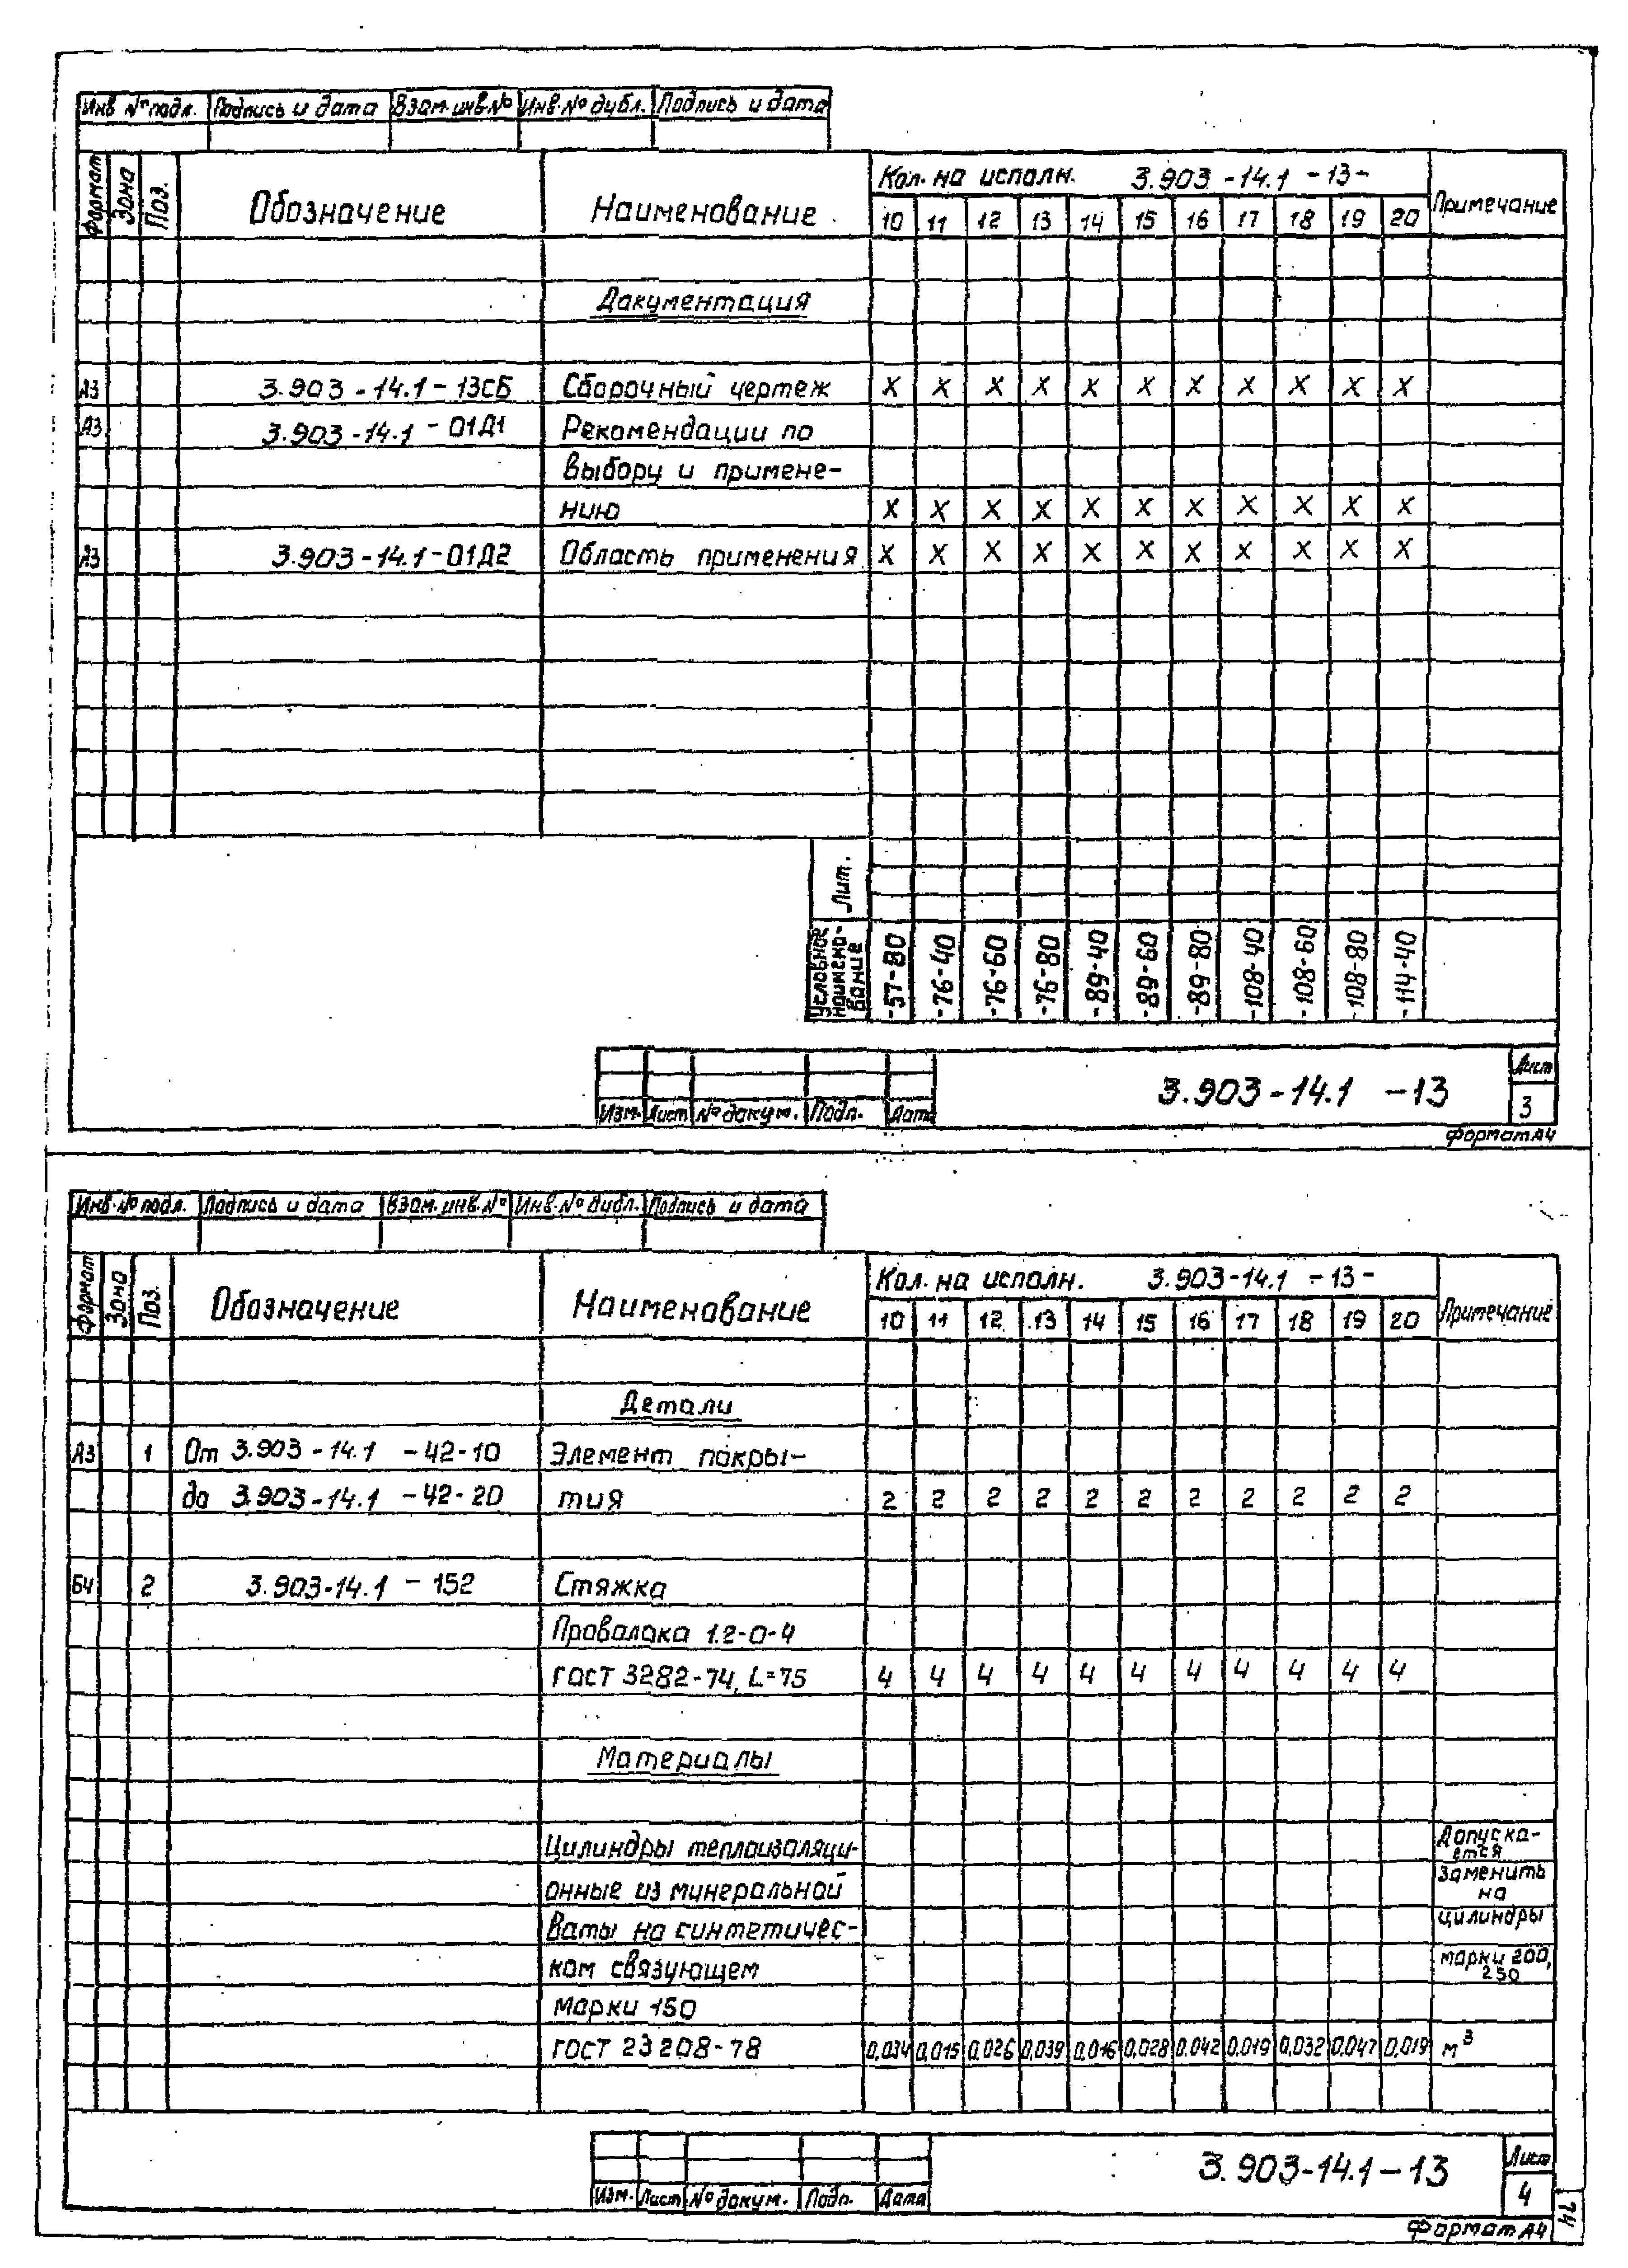 Инв № подл. Подпись и дата Взам. инв № Инв. № дубл. Подпись и дата
Формат Зона Поз. Обозначение Наименование Кол. на исполн. 3.903-14.1 -13- Примечание
10 11 12 13 14 15 16 17 18 19 20
Документация
А3 3.903-14.1-13СБ Сборочный чертеж X X X X X X X X X X X
А3 3.903-14.1-01Д1 Рекомендации по
выбору и примене-
нию X X X X X X X X X X X
А3 3.903-14.1-01Д2 Область применения X X X X X X X X X X X
Лит.
Условное наимено-вание -57-80 -76-40 -76-60 -76-80 -89-40 -89-60 -89-80 -108-40 -108-60 -108-80 -114-40
3.903-14.1 -13 Лист
3
Изм. Лист № докум. Подп. Дата
Формат А4
Инв. № подл. Подпись и дата Взам. инв. № Инв. № дубл. Подпись и дата
Формат Зона Поз. Обозначение Наименование Кол. на исполн. 3.903-14.1 -13- Примечание
10 11 12 13 14 15 16 17 18 19 20
Детали
А3 1 От 3.903-14.1 -42-10 Элемент покры-
до 3.903-14.1 -42-20 тия 2 2 2 2 2 2 2 2 2 2 2
БЧ 2 3.903-14.1 -152 Стяжка
Проволока 1.2-0-4
ГОСТ 3282-74, L=75 4 4 4 4 4 4 4 4 4 4 4
Материалы
Цилиндры теплоизоляци- Допуска-ется
онные из минеральной заменить на
ваты на синтетичес- цилиндры
ком связующем марки 200, 250
марки 150
ГОСТ 23208-78 0,034 0,015 0,026 0,039 0,016 0,028 0,042 0,019 0,032 0,047 0,019 м³
3.903-14.1-13 Лист
4
Изм. Лист № докум. Подп. Дата
Формат А4
74